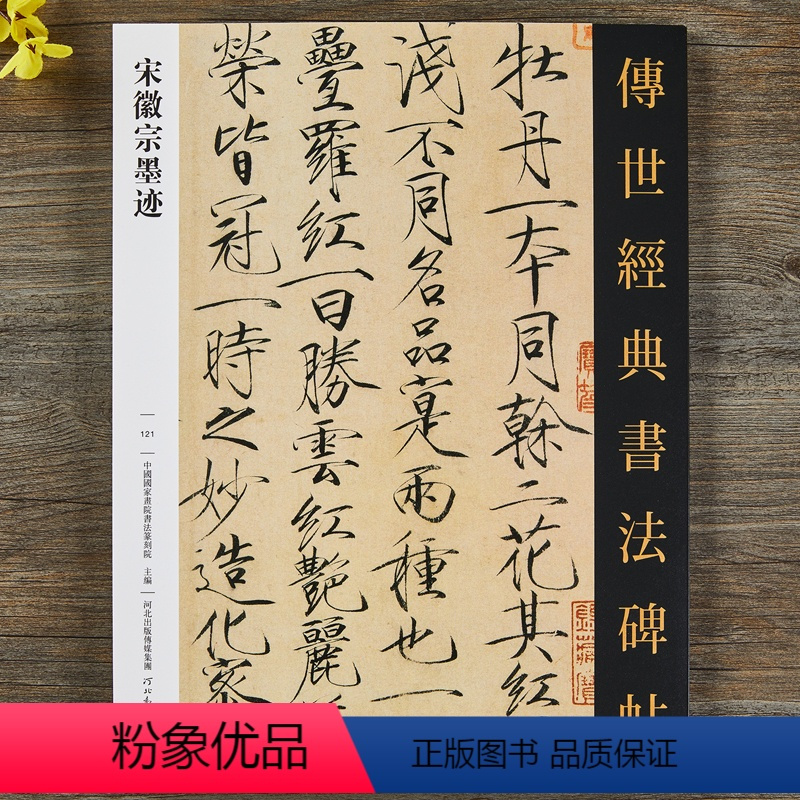 傳世經典書法碑帖
牡丹一本同榦二花其紅
淺不同名品寔兩種也一
疊羅紅一曰勝雲紅艷麗
榮皆冠一時之妙造化密
宋徽宗墨迹
121
中國國家畫院書法篆刻院 主編
河北出版傳媒集團
粉象优品
正版图书 品质保证